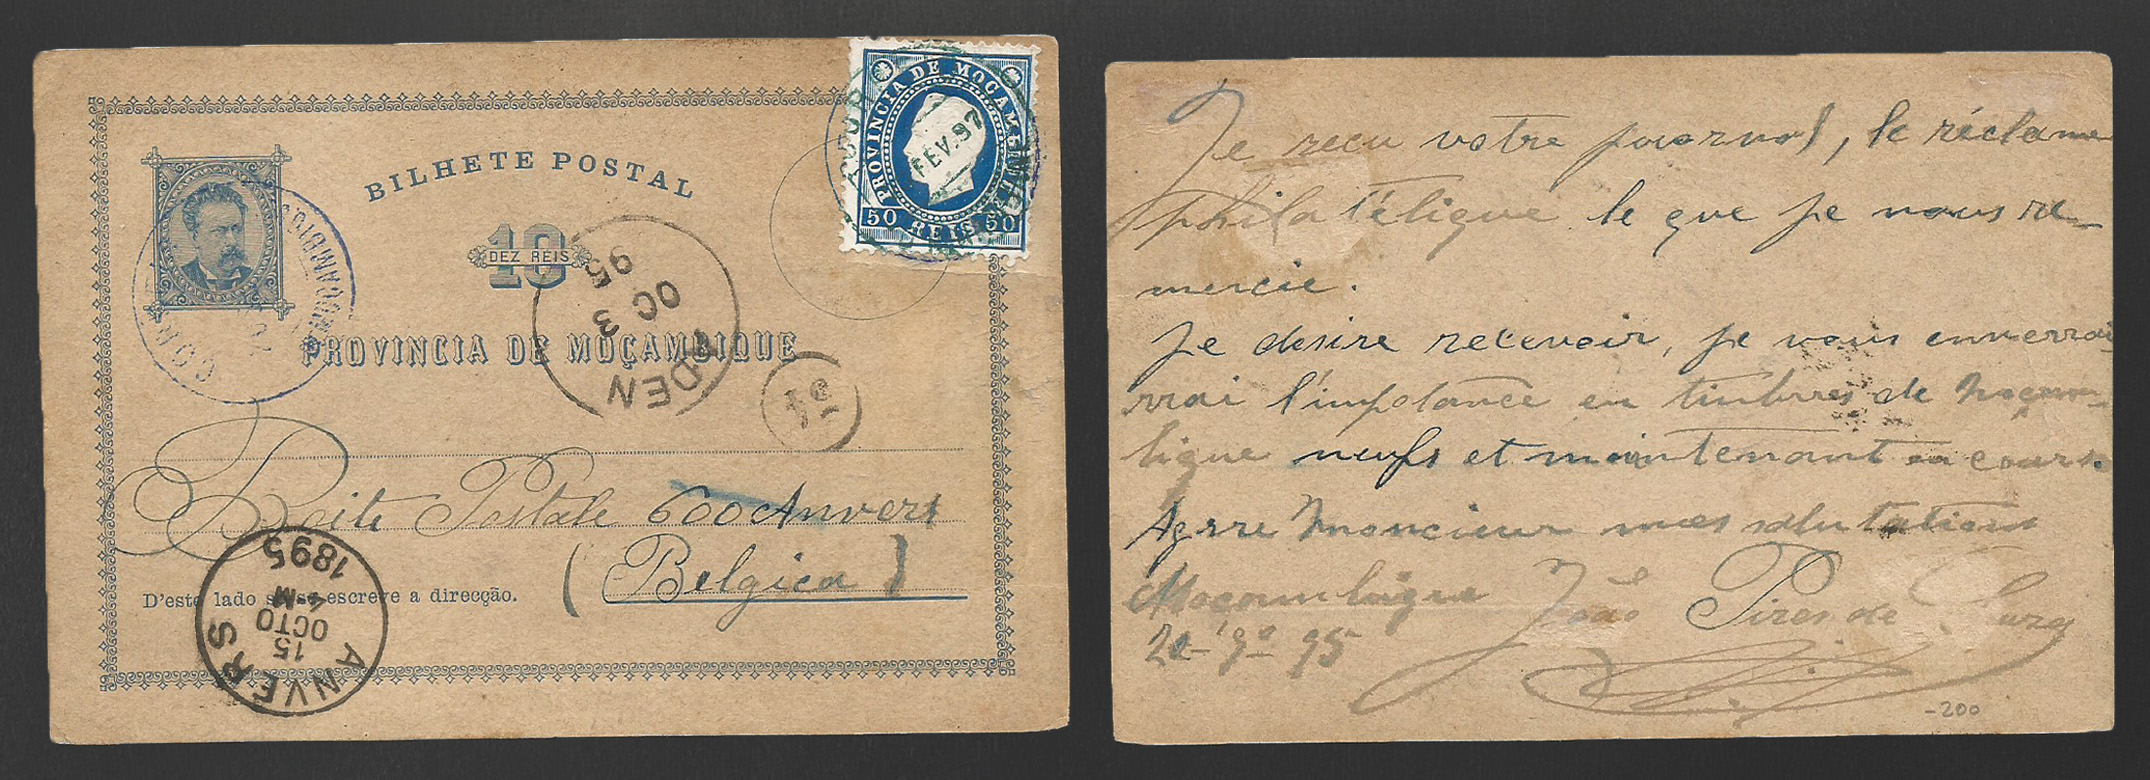 BILHETE POSTAL
10
DEZ REIS
PROVINCIA DE MOÇAMBIQUE
PROVINCIA DE MOÇAMBIQUE
50 REIS 50
FEV. 97
ADEN
OC 3
95
Boite Postale 600 Anvers
(Belgica)
D'este lado só se escreve a direcção.
ANVERS
15
OCTO
4-M
1895
Je reçu votre journal, le réclame
philatélique le que je vous re-
mercie.
Je desire recevoir, je vous enverrai
rrai l'impotance en timbres de Moçam-
bique neufs et maintenant en cours.
Agrre Moncieur mes salutations
Moçambique João Pires de
20-9º-95
-200